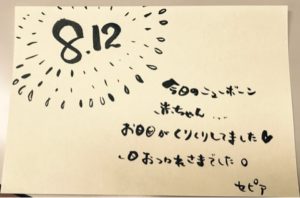 8.12
今日のニューボーン
赤ちゃん...
お目目がくりくりしてました♥
一日おつかれさまでした。
セピア